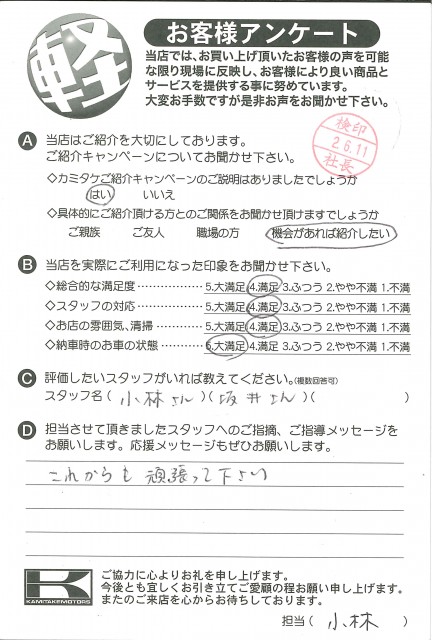 軽
お客様アンケート
当店では、お買い上げ頂いたお客様の声を可能
な限り現場に反映し、お客様により良い商品と
サービスを提供する事に努めています。
大変お手数ですが是非お声をお聞かせ下さい。
検印
2 6.11
社長
A 当店はご紹介を大切にしております。
ご紹介キャンペーンについてお聞かせ下さい。
◇カミタケご紹介キャンペーンのご説明はありましたでしょうか
はい いいえ
◇具体的にご紹介頂ける方とのご関係をお聞かせ頂けますでしょうか
ご親族 ご友人 職場の方 機会があれば紹介したい
B 当店を実際にご利用になった印象をお聞かせ下さい。
◇総合的な満足度 ………… 5.大満足 4.満足 3.ふつう 2.やや不満 1.不満
◇スタッフの対応 ………… 5.大満足 4.満足 3.ふつう 2.やや不満 1.不満
◇お店の雰囲気、清掃 ……… 5.大満足 4.満足 3.ふつう 2.やや不満 1.不満
◇納車時のお車の状態 ……… 5.大満足 4.満足 3.ふつう 2.やや不満 1.不満
C 評価したいスタッフがいれば教えてください。(複数回答可)
スタッフ名(小林さん)(坂井さん)( )
D 担当させて頂きましたスタッフへのご指摘、ご指導メッセージを
お願いします。応援メッセージもぜひお願いします。
これからも頑張って下さい
K
KAMITAKEMOTORS
ご協力に心よりお礼を申し上げます。
今後とも宜しくお引き立てご愛顧の程お願い申し上げます。
またのご来店を心からお待ちしております。
担当(小林)